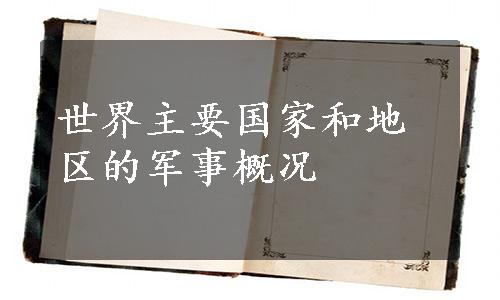 世界主要国家和地
区的军事概况